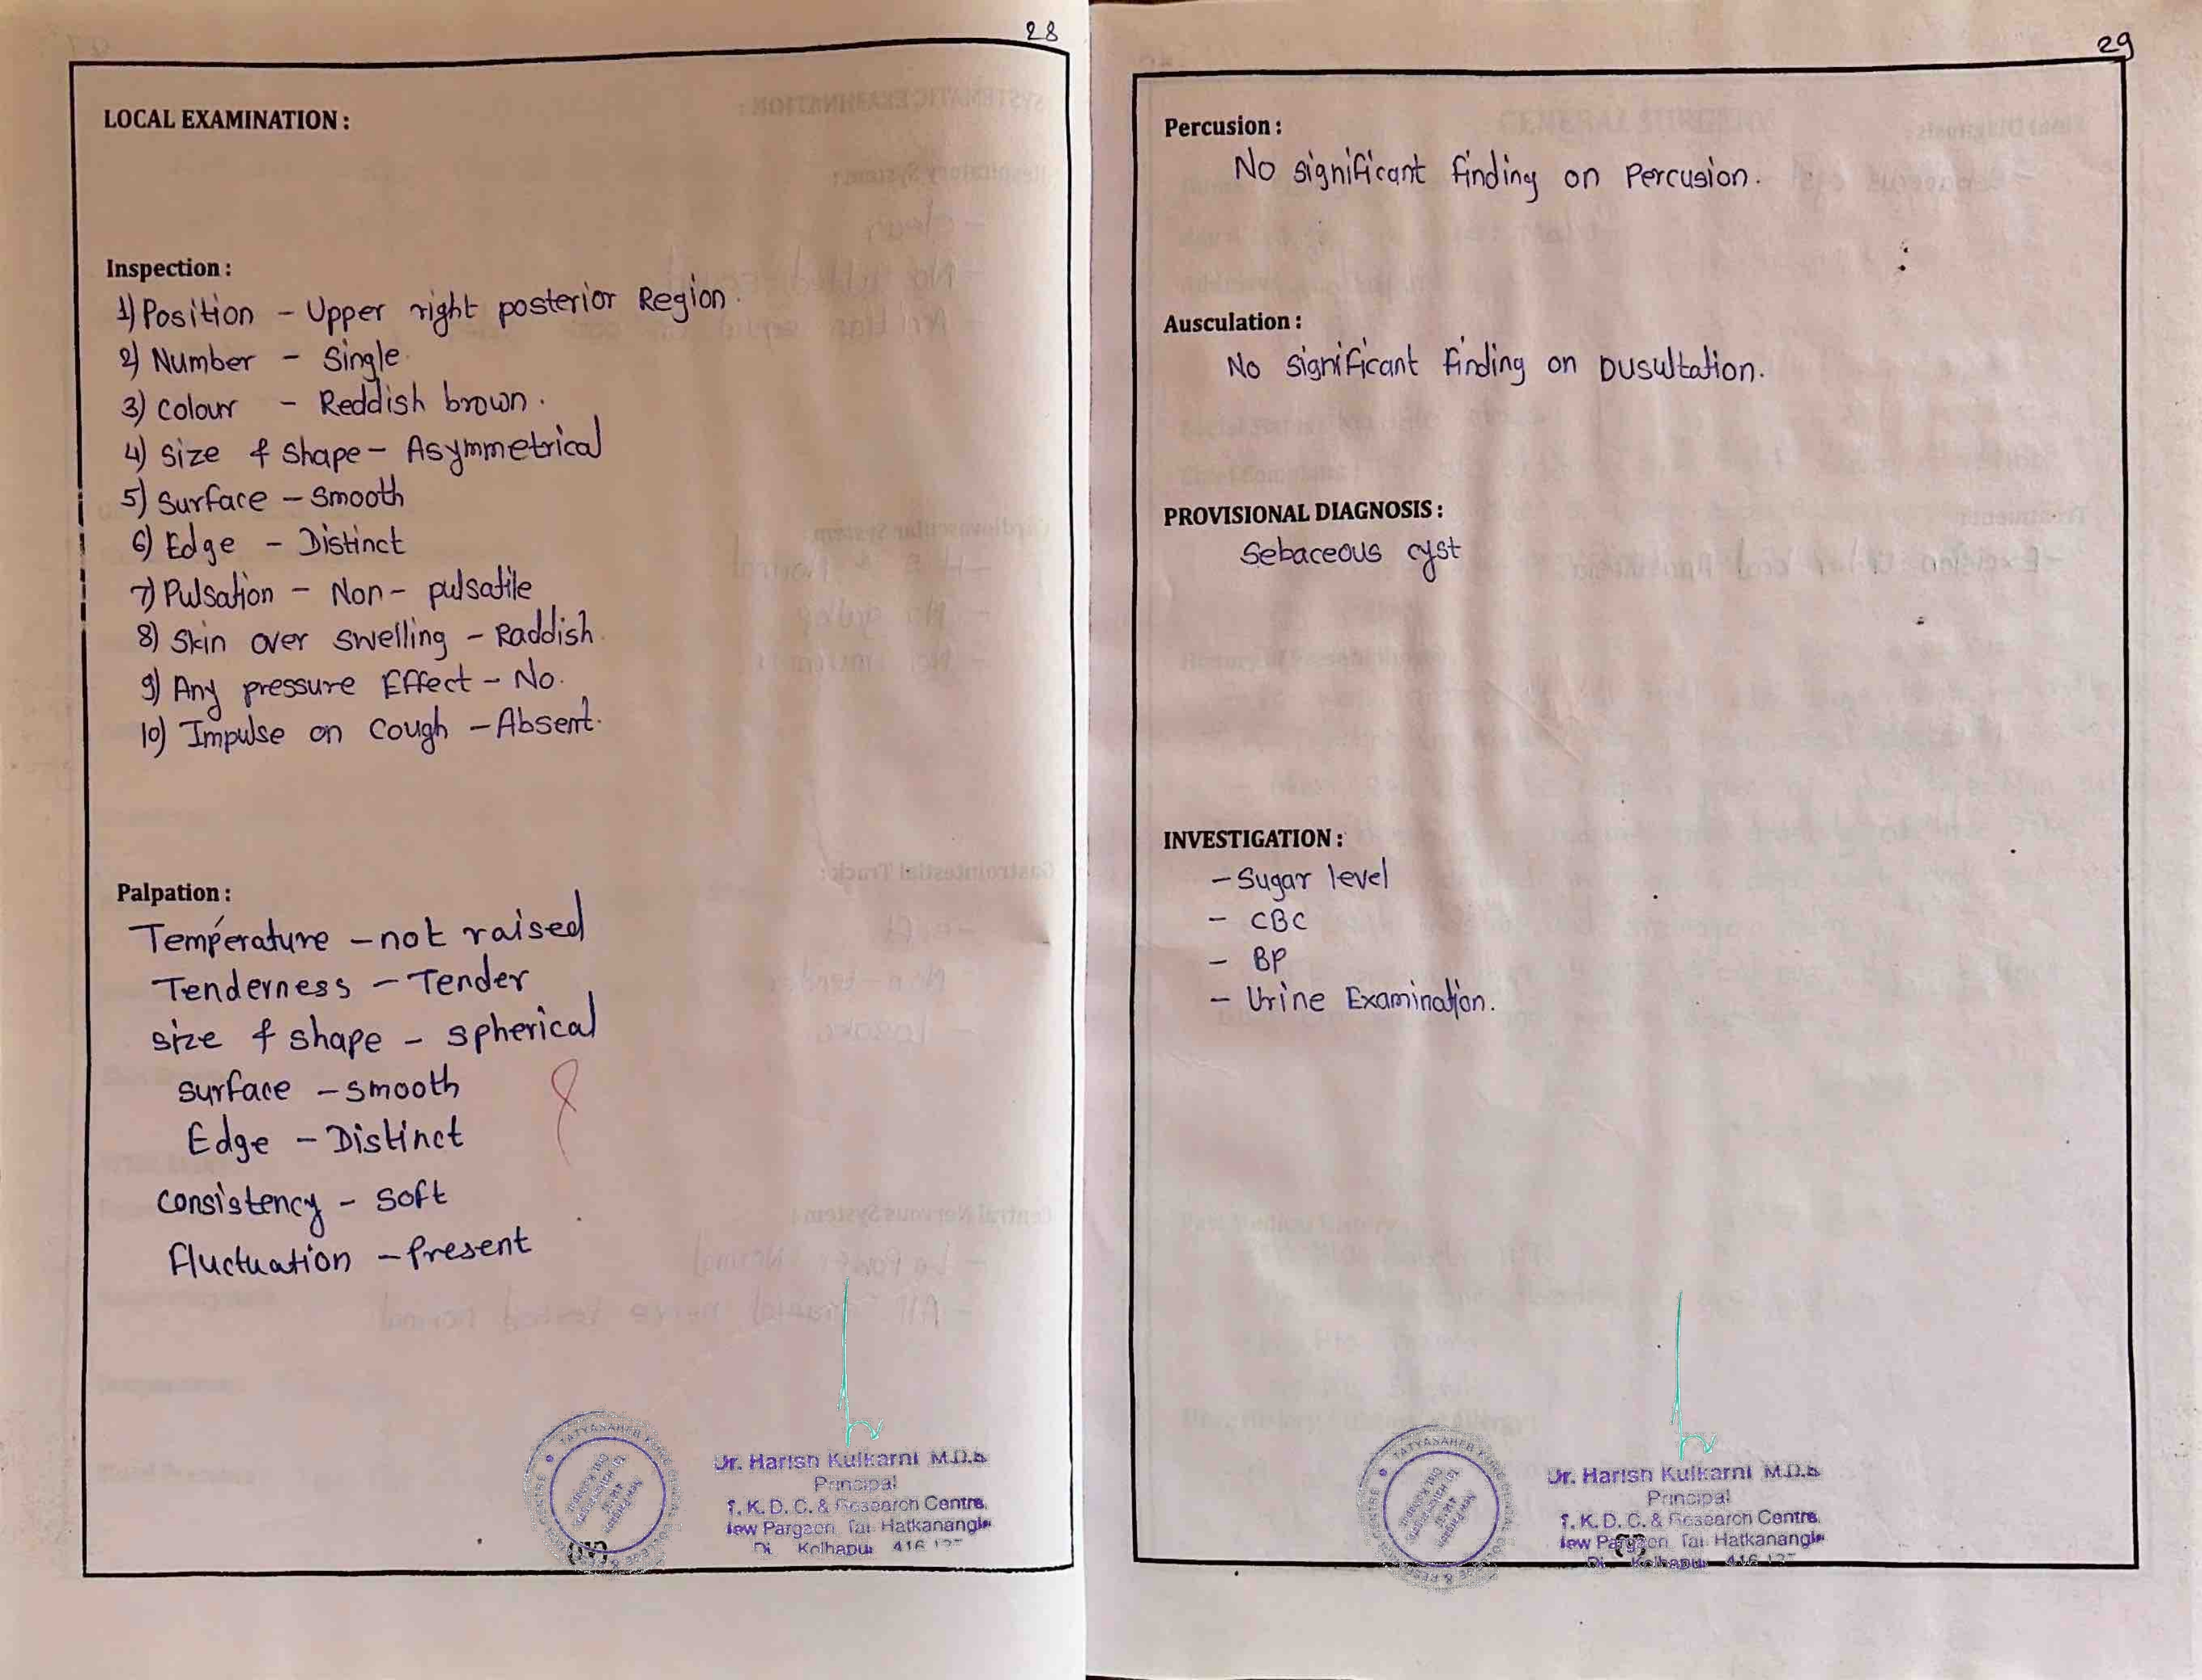 28
LOCAL EXAMINATION :
Inspection :
1) Position - Upper right posterior Region.
2) Number - Single.
3) Colour - Reddish brown.
4) Size & Shape - Asymmetrical
5) Surface - Smooth
6) Edge - Distinct
7) Pulsation - Non-pulsatile
8) Skin over swelling - Raddish.
9) Any pressure Effect - No.
10) Impulse on Cough - Absent.
Palpation :
Temperature - not raised
Tenderness - Tender
size & shape - spherical
surface - smooth
Edge - Distinct
consistency - soft
fluctuation - Present
Dr. Harish Kulkarni M.D.S
Principal
T. K. D. C. & Research Centre,
New Pargaon, Tal. Hatkanangle
Di Kolhapur 416
29
Percusion :
No significant finding on Percusion.
Ausculation :
No significant finding on Dusultation.
PROVISIONAL DIAGNOSIS :
Sebaceous cyst
INVESTIGATION :
- Sugar level
- CBC
- BP
- Urine Examination.
Dr. Harish Kulkarni M.D.S
Principal
T. K. D. C. & Research Centre,
New Pargaon, Tal. Hatkanangle
Di Kolhapur 416